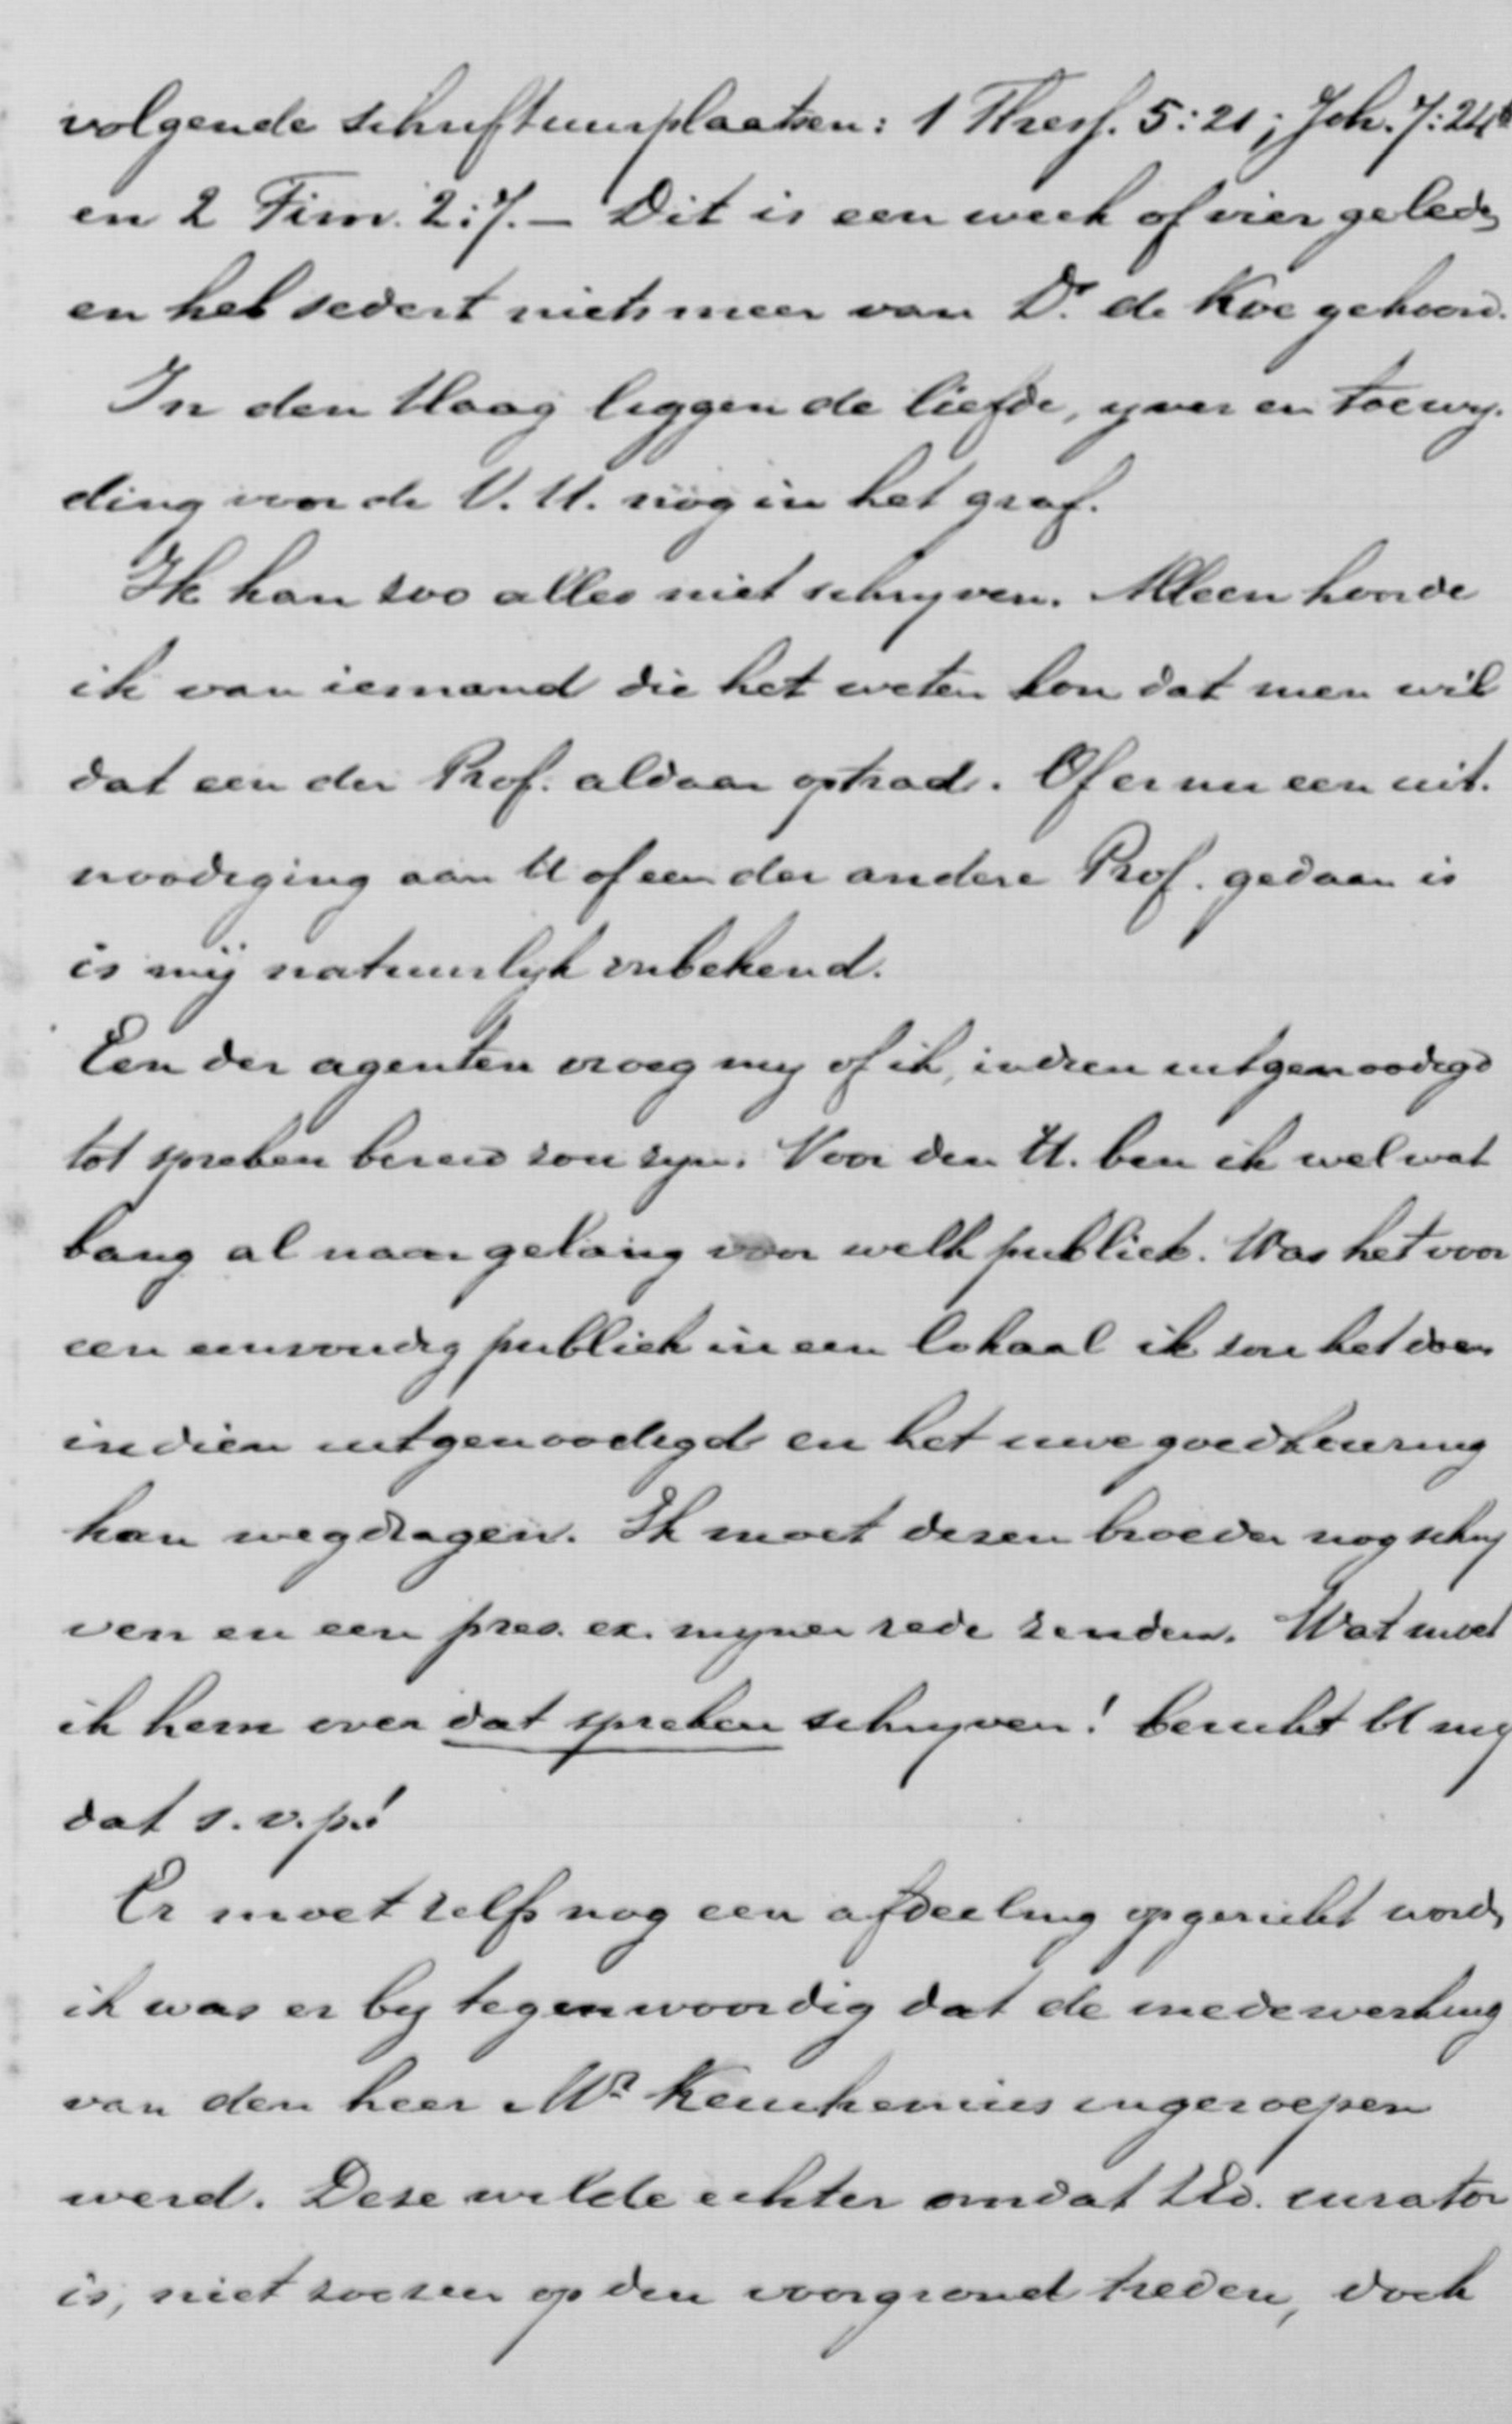 volgende schriftuurplaatsen: 1 Thess. 5:21; Joh. 7:24b
en 2 Tim. 2:7. — Dit is een week of vier geleden
en heb sedert niets meer van Dr. de Koe gehoord.
In den Haag liggen de liefde, yver en toewy-
ding voor de V. U. nog in het graf.
Ik kan zoo alles niet schryven. Alleen hoorde
ik van iemand die het weten kon dat men wil
dat een der Prof. aldaar optrad. Of er nu een uit-
noodiging aan U of een der andere Prof. gedaan is
is mij natuurlyk onbekend.
Een der agenten vroeg my of ik, indien uitgenoodigd
tot spreken bereid zou zyn. Voor den H. ben ik wel wat
bang al naar gelang voor welk publiek. Was het voor
een eenvoudig publiek in een lokaal ik zou het doen
indien uitgenoodigd en het uwe goedkeuring
kan wegdragen. Ik moet dezen broeder nog schry
ven en een pres. ex. myner rede zenden. Wat moet
ik hem over dat spreken schryven! bericht U my
dat s.v.p.!
Er moet zelfs nog een afdeeling opgericht worden
ik was er by tegenwoordig dat de medewerking
van den heer Mr. Keuchenius ingeroepen
werd. Deze wilde echter omdat ZEd. curator
is, niet zoozeer op den voorgrond treden, doch